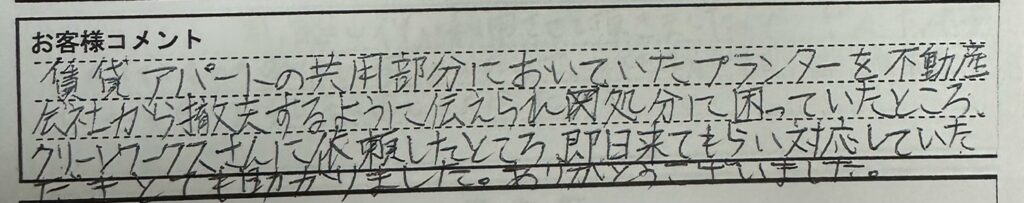 お客様コメント
賃貸アパートの共用部分においていたプランターを不動産
会社から撤去するように伝えられ処分に困っていたところ、
クリーンワークスさんに依頼したところ、即日来てもらい対応していた
だきとても助かりました。ありがとうございました。